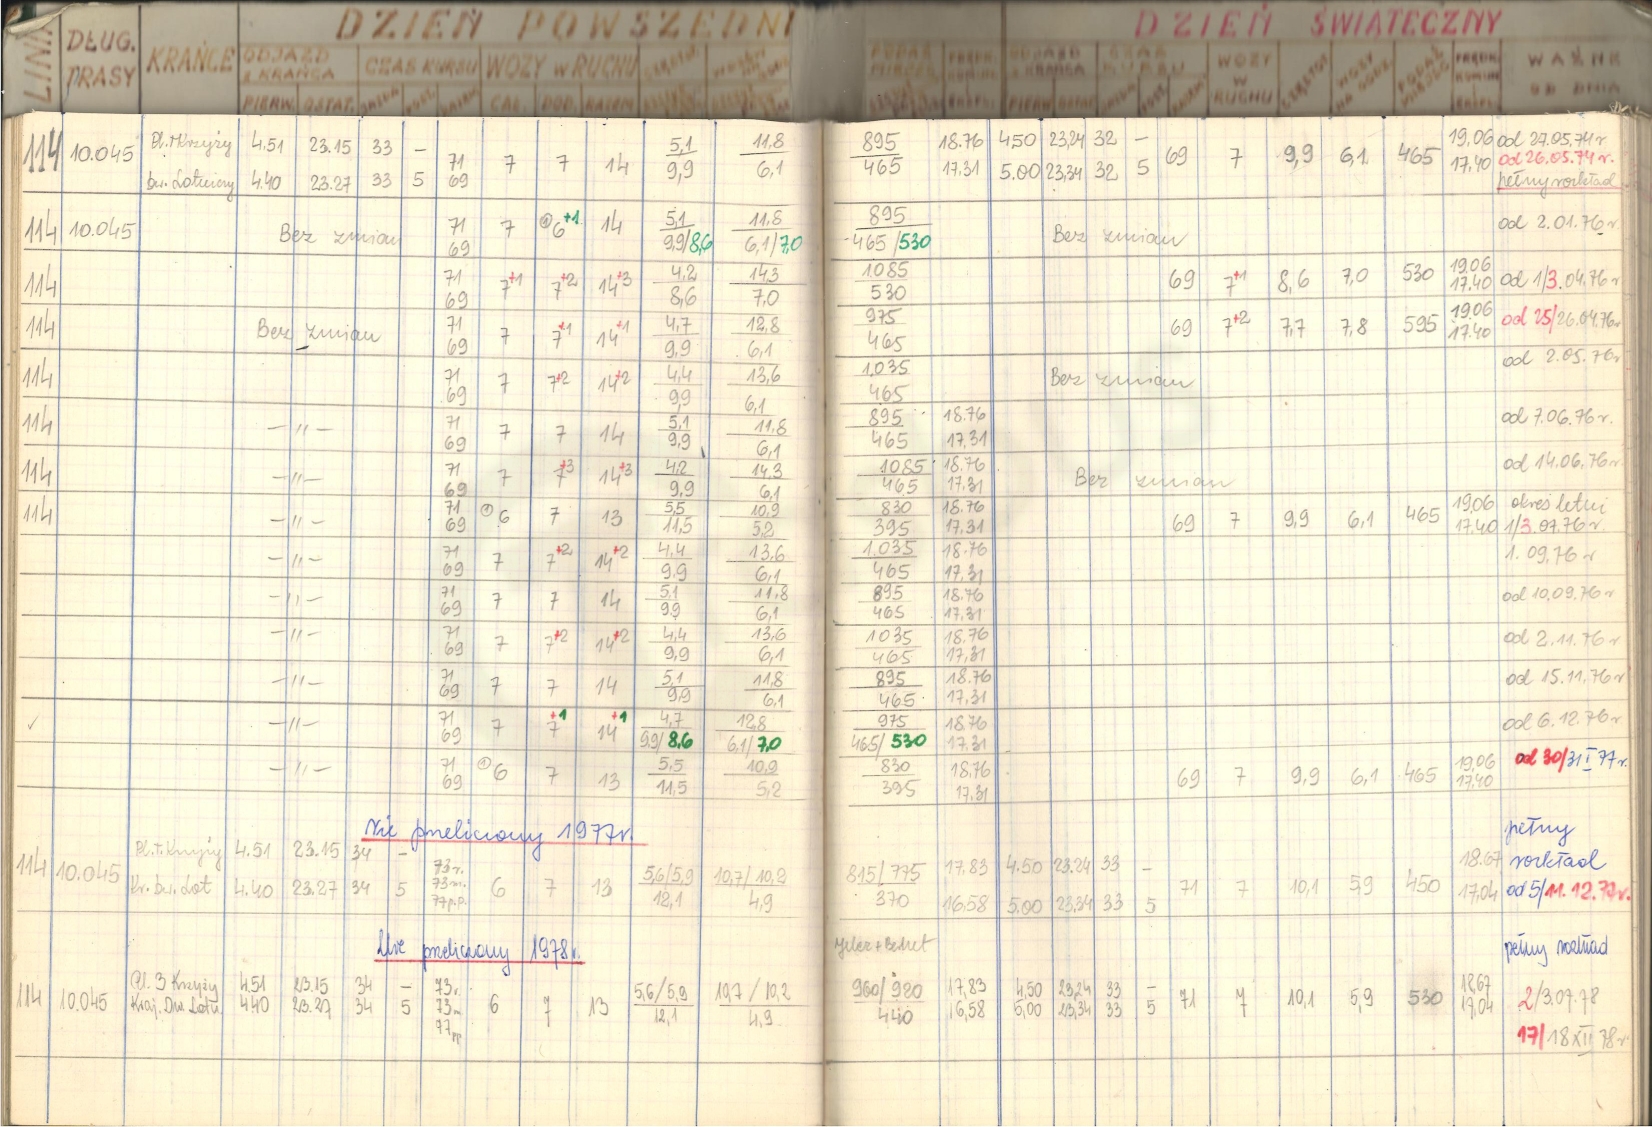 LINIA DŁUG. TRASY KRAŃCE DZIEŃ POWSZEDNI DZIEŃ ŚWIĄTECZNY
ODJAZD Z KRAŃCA CZAS KURSU WOZY W RUCHU ODJAZD Z KRAŃCA WOZY W RUCHU WAŻNE OD DNIA
PIERW. OSTAT. RAZEM
114 10.045 Pl. 3 Krzyży 4.51 23.15 33 – 71 7 7 14 5,1 11,8 895 18.76 4.50 23.24 32 – 69 7 9,9 6,1 465 19,06 od 27.05.74 r
bw. Lotniczy 4.40 23.27 33 5 69 9,9 6,1 465 17,31 5.00 23,34 32 5 17,40 od 26.05.74 r.
pełny rozkład
114 10.045 Bez zmian 71 7 6+1 14 5,1 11,8 895 Bez zmian od 2.01.76 r.
69 9,9/8,6 6,1/7,0 465/530
114 71 7+1 7+2 14+3 4,2 14,3 1085 69 7+1 8,6 7,0 530 19.06 od 1/3.04.76 r
69 8,6 7,0 530 17.40
114 Bez zmian 71 7 7+1 14+1 4,7 12,8 975 69 7+2 7,7 7,8 595 19.06 od 25/26.04.76 r
69 9,9 6,1 465 17.40
114 71 7 7+2 14+2 4,4 13,6 1035 Bez zmian od 2.05.76 r
69 9,9 6,1 465
114 –〃– 71 7 7 14 5,1 11,8 895 18.76 od 7.06.76 r.
69 9,9 6,1 465 17.31
114 –〃– 71 7 7+3 14+3 4,2 14,3 1085 18.76 Bez zmian od 14.06.76 r.
69 9,9 6,1 465 17.31
114 –〃– 71 6 7 13 5,5 10,9 830 18.76 69 7 9,9 6,1 465 19,06 okres letni
69 11,5 5,2 395 17.31 17.40 1/3.07.76 r.
–〃– 71 7 7+2 14+2 4,4 13,6 1035 18.76 1.09.76 r
69 9,9 6,1 465 17,31
–〃– 71 7 7 14 5,1 11,8 895 18.76 od 10.09.76 r
69 9,9 6,1 465 17.31
–〃– 71 7 7+2 14+2 4,4 13,6 1035 18.76 od 2.11.76 r
69 9,9 6,1 465 17,31
–〃– 71 7 7 14 5,1 11,8 895 18.76 od 15.11.76 r
69 9,9 6,1 465 17,31
✓ –〃– 71 7 7+1 14+1 4,7 12,8 975 18.76 od 6.12.76 r
69 9,9/8,6 6,1/7,0 465/530 17.31
–〃– 71 6 7 13 5,5 10,9 830 18.76 69 7 9,9 6,1 465 19,06 od 30/31 I 77 r.
69 11,5 5,2 395 17.31 17,40
Nie przeliczony 1977r. pełny
114 10.045 Pl. 3 Krzyży 4.51 23.15 34 – 73 r. 6 7 13 5,6/5,9 10,7/10,2 815/775 17.83 4.50 23.24 33 – 71 7 10,1 5,9 450 18.67 rozkład
Kr. bw. Lot 4.40 23.27 34 5 73 m. 12,1 4,9 370 16.58 5.00 23.34 33 5 17,04 od 5/11.12.77 r.
77 p.p.
Nie przeliczony 1978r. pełny rozkład
114 10.045 Pl. 3 Krzyży 4.51 23.15 34 – 73 r. 6 7 13 5,6/5,9 10,7/10,2 960/920 17,83 4,50 23,24 33 – 71 7 10,1 5,9 530 18,67 2/3.07.78
4.40 23.27 34 5 73 m 12,1 4,9 440 16,58 5,00 23,34 33 5 17,04
77 pp. 17/18 XII 78 r